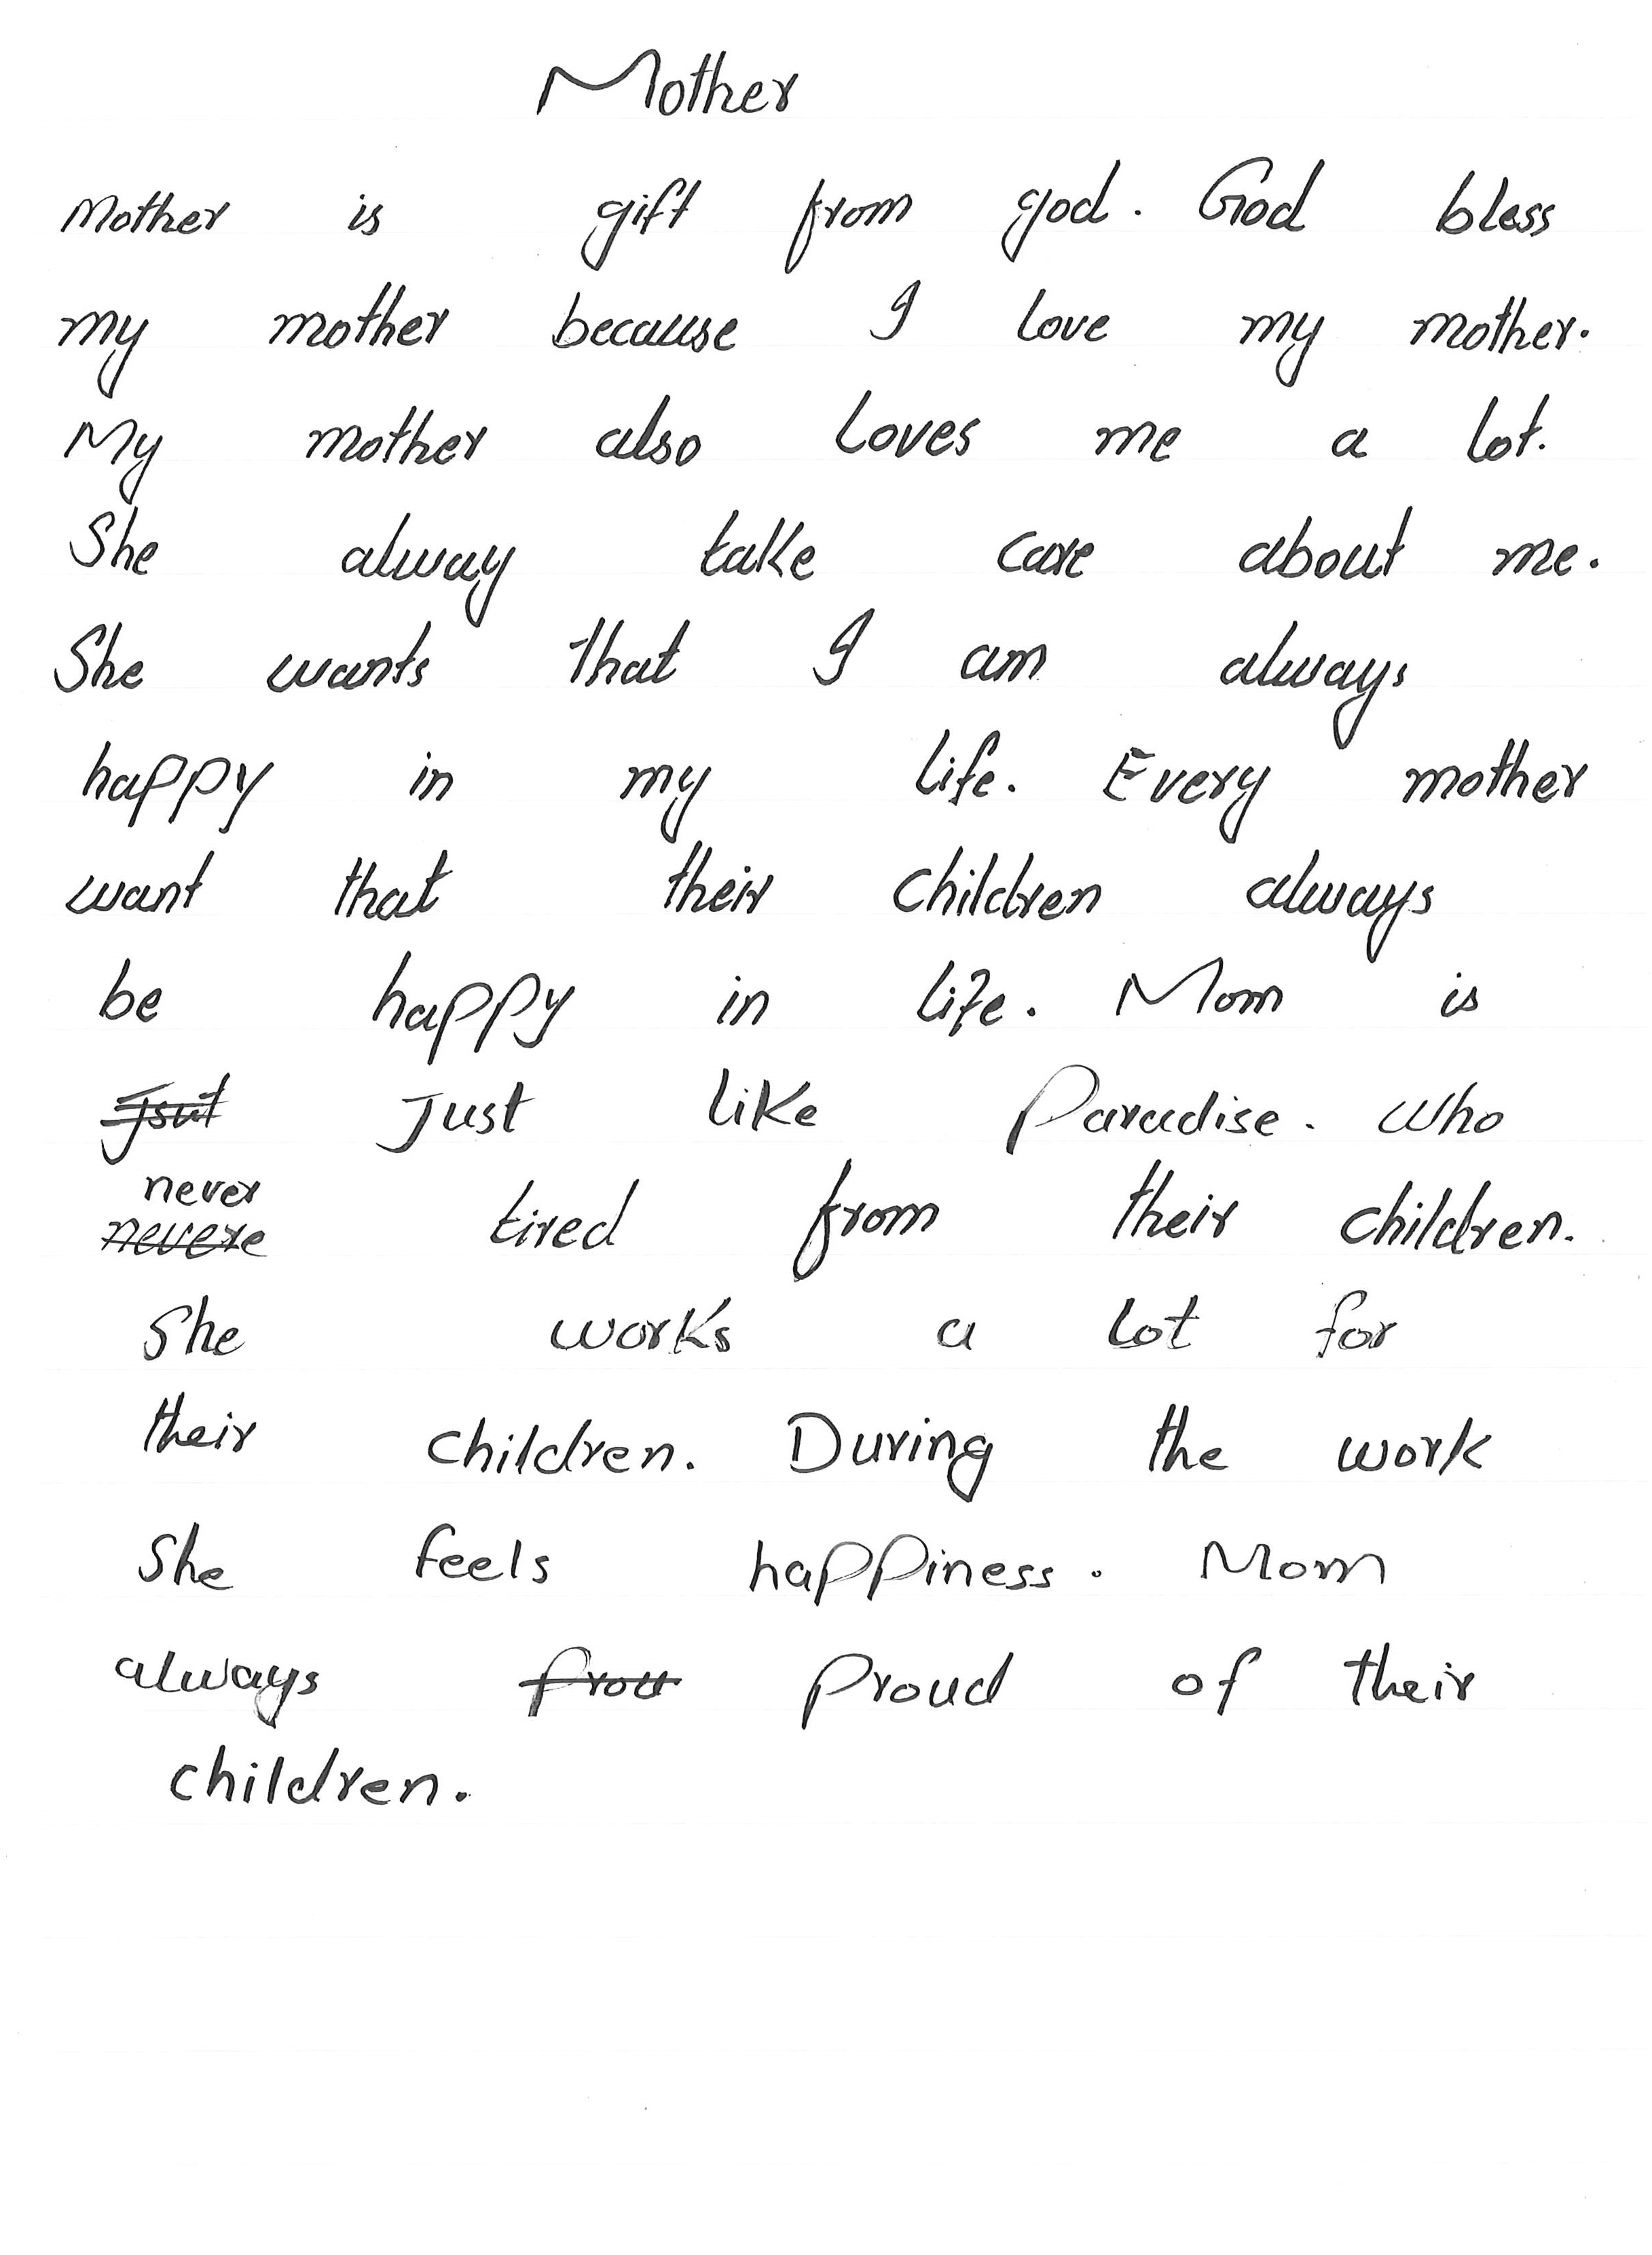 Mother
Mother is gift from god. God bless
my mother because I love my mother.
My mother also loves me a lot.
She alway take care about me.
She wants that I am always
happy in my life. Every mother
want that their children always
be happy in life. Mom is
Jsut Just like Paradise. Who
never
nevere tired from their children.
She works a lot for
their children. During the work
She feels happiness. Mom
always prou proud of their
children.